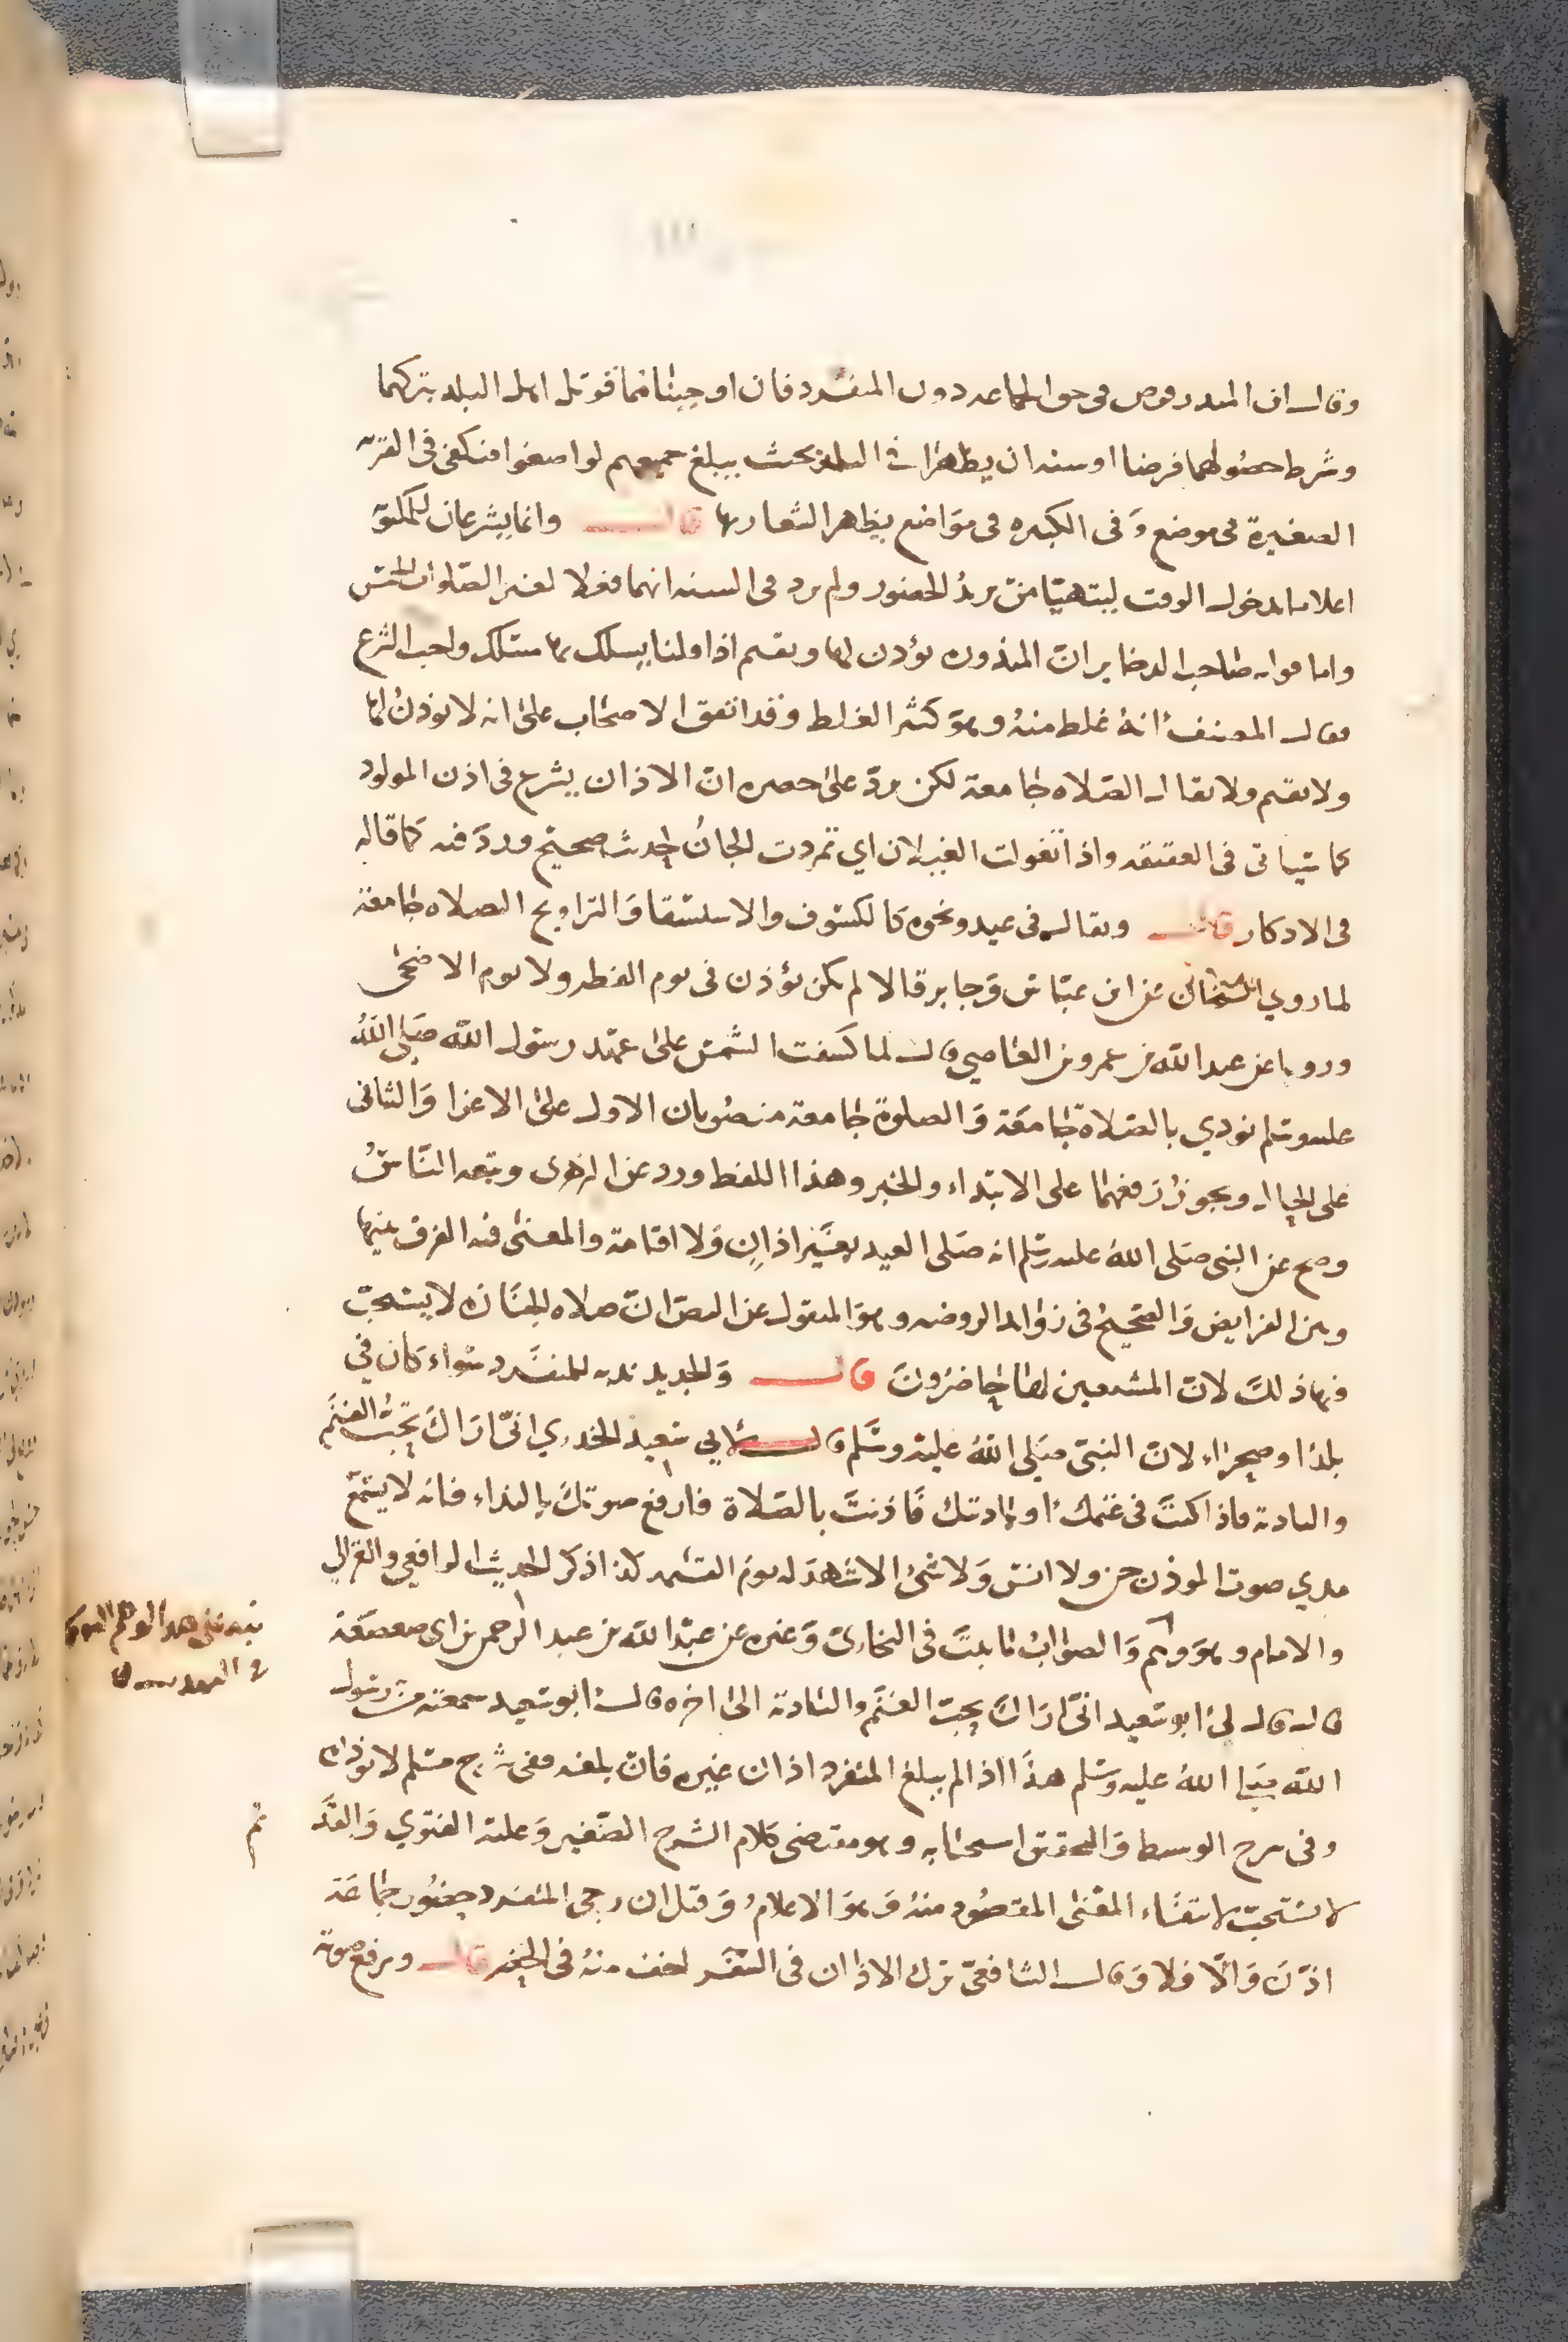 وقال ان المندر فرض في حق الجماعه دون المنفرد فان اوجبناهما قوتل اهل البلد بتركهما
وشرط حصولهما فرضا او سنه ان يظهرا في البلد بحيث يبلغ جميعهم لو اصغوا فيكفي في القريه
الصغيرة في موضع وفي الكبيره في مواضع يظهر الشعار بها قال وانما يشرعان للمكتوبة
اعلاما بدخول الوقت ليتهيا من يريد الحضور ولم يرد في السنه انهما فعلا لغير الصلوات الخمس
واما قول صاحب الدخاير ان المنذوره يؤذن لها ويقيم اذا قلنا يسلك بها مسلك واجب الشرع
فقال المصنف انه غلط منه وهو كثير الغلط وقد اتفق الاصحاب على انه لا يوذن لها
ولا يقيم ولا يقال الصلاه جامعة لكن يرد على حصره ان الاذان يشرع في اذن المولود
كما سياتي في العقيقه واذا تغولت الغيلان اي تمردت الجان لحديث صحيح ورد فيه كما قاله
في الاذكار قال ويقال في عيد ونحوه كالكسوف والاستسقا والتراويح الصلاه جامعة
لما روى الشيخان عن ابن عباس وجابر قالا لم يكن يؤذن في يوم الفطر ولا يوم الاضحى
ورويا عن عبد الله بن عمرو بن العاصي قال لما كسفت الشمس على عهد رسول الله صلى الله
عليه وسلم نودي بالصلاة جامعة والصلوة جامعة منصوبان الاول على الاغرا والثاني
على الحال ويجوز رفعهما على الابتداء والخبر وهذا اللفظ ورد عن الزهري وتبعه الناس
وصح عن النبي صلى الله عليه وسلم انه صلى العيد بغير اذان ولا اقامة والمعنى فيه الفرق بينها
وبين الفرايض والصحيح في زوائد الروضه وهو المنقول عن النص ان صلاه الجنازه لا يستحب
فيها ذلك لان المشيعين لها حاضرون قال والجديد ندبه للمنفرد سواء كان في
بلد او صحراء لان النبي صلى الله عليه وسلم قال لابي سعيد الخدري اني اراك تحب الغنم
والباديه فاذا كنت في غنمك او باديتك فاذنت بالصلاة فارفع صوتك بالنداء فانه لا يسمع
مدي صوت الموذن جن ولا انس ولا شئ الا شهد له يوم القيمه كذا ذكر الحديث الرافعي والغزالي
والامام وهو وهم والصواب ثابت في البخاري وغيره عن عبد الله بن عبد الرحمن بن ابي صعصعة
قال قال لي ابو سعيد اني اراك تحب الغنم والبادية الى اخره قال ابو سعيد سمعته من رسول
الله صلى الله عليه وسلم هذا اذا لم يبلغ المنفرد اذان غيره فان بلغه ففي شرح مسلم لا يوذن
وفي شرح الوسيط والتحقيق استحبابه وهو مقتضى كلام الشرح الصغير وعليه الفتوي والقديم
لا يستحب لانتفاء المعنى المقصود منه وهو الاعلام وقيل ان رجى المنفرد حضور جماعة
اذن والا فلا وقال الشافعي ترك الاذان في السفر اخف منه في الحضر قال ويرفع صوته